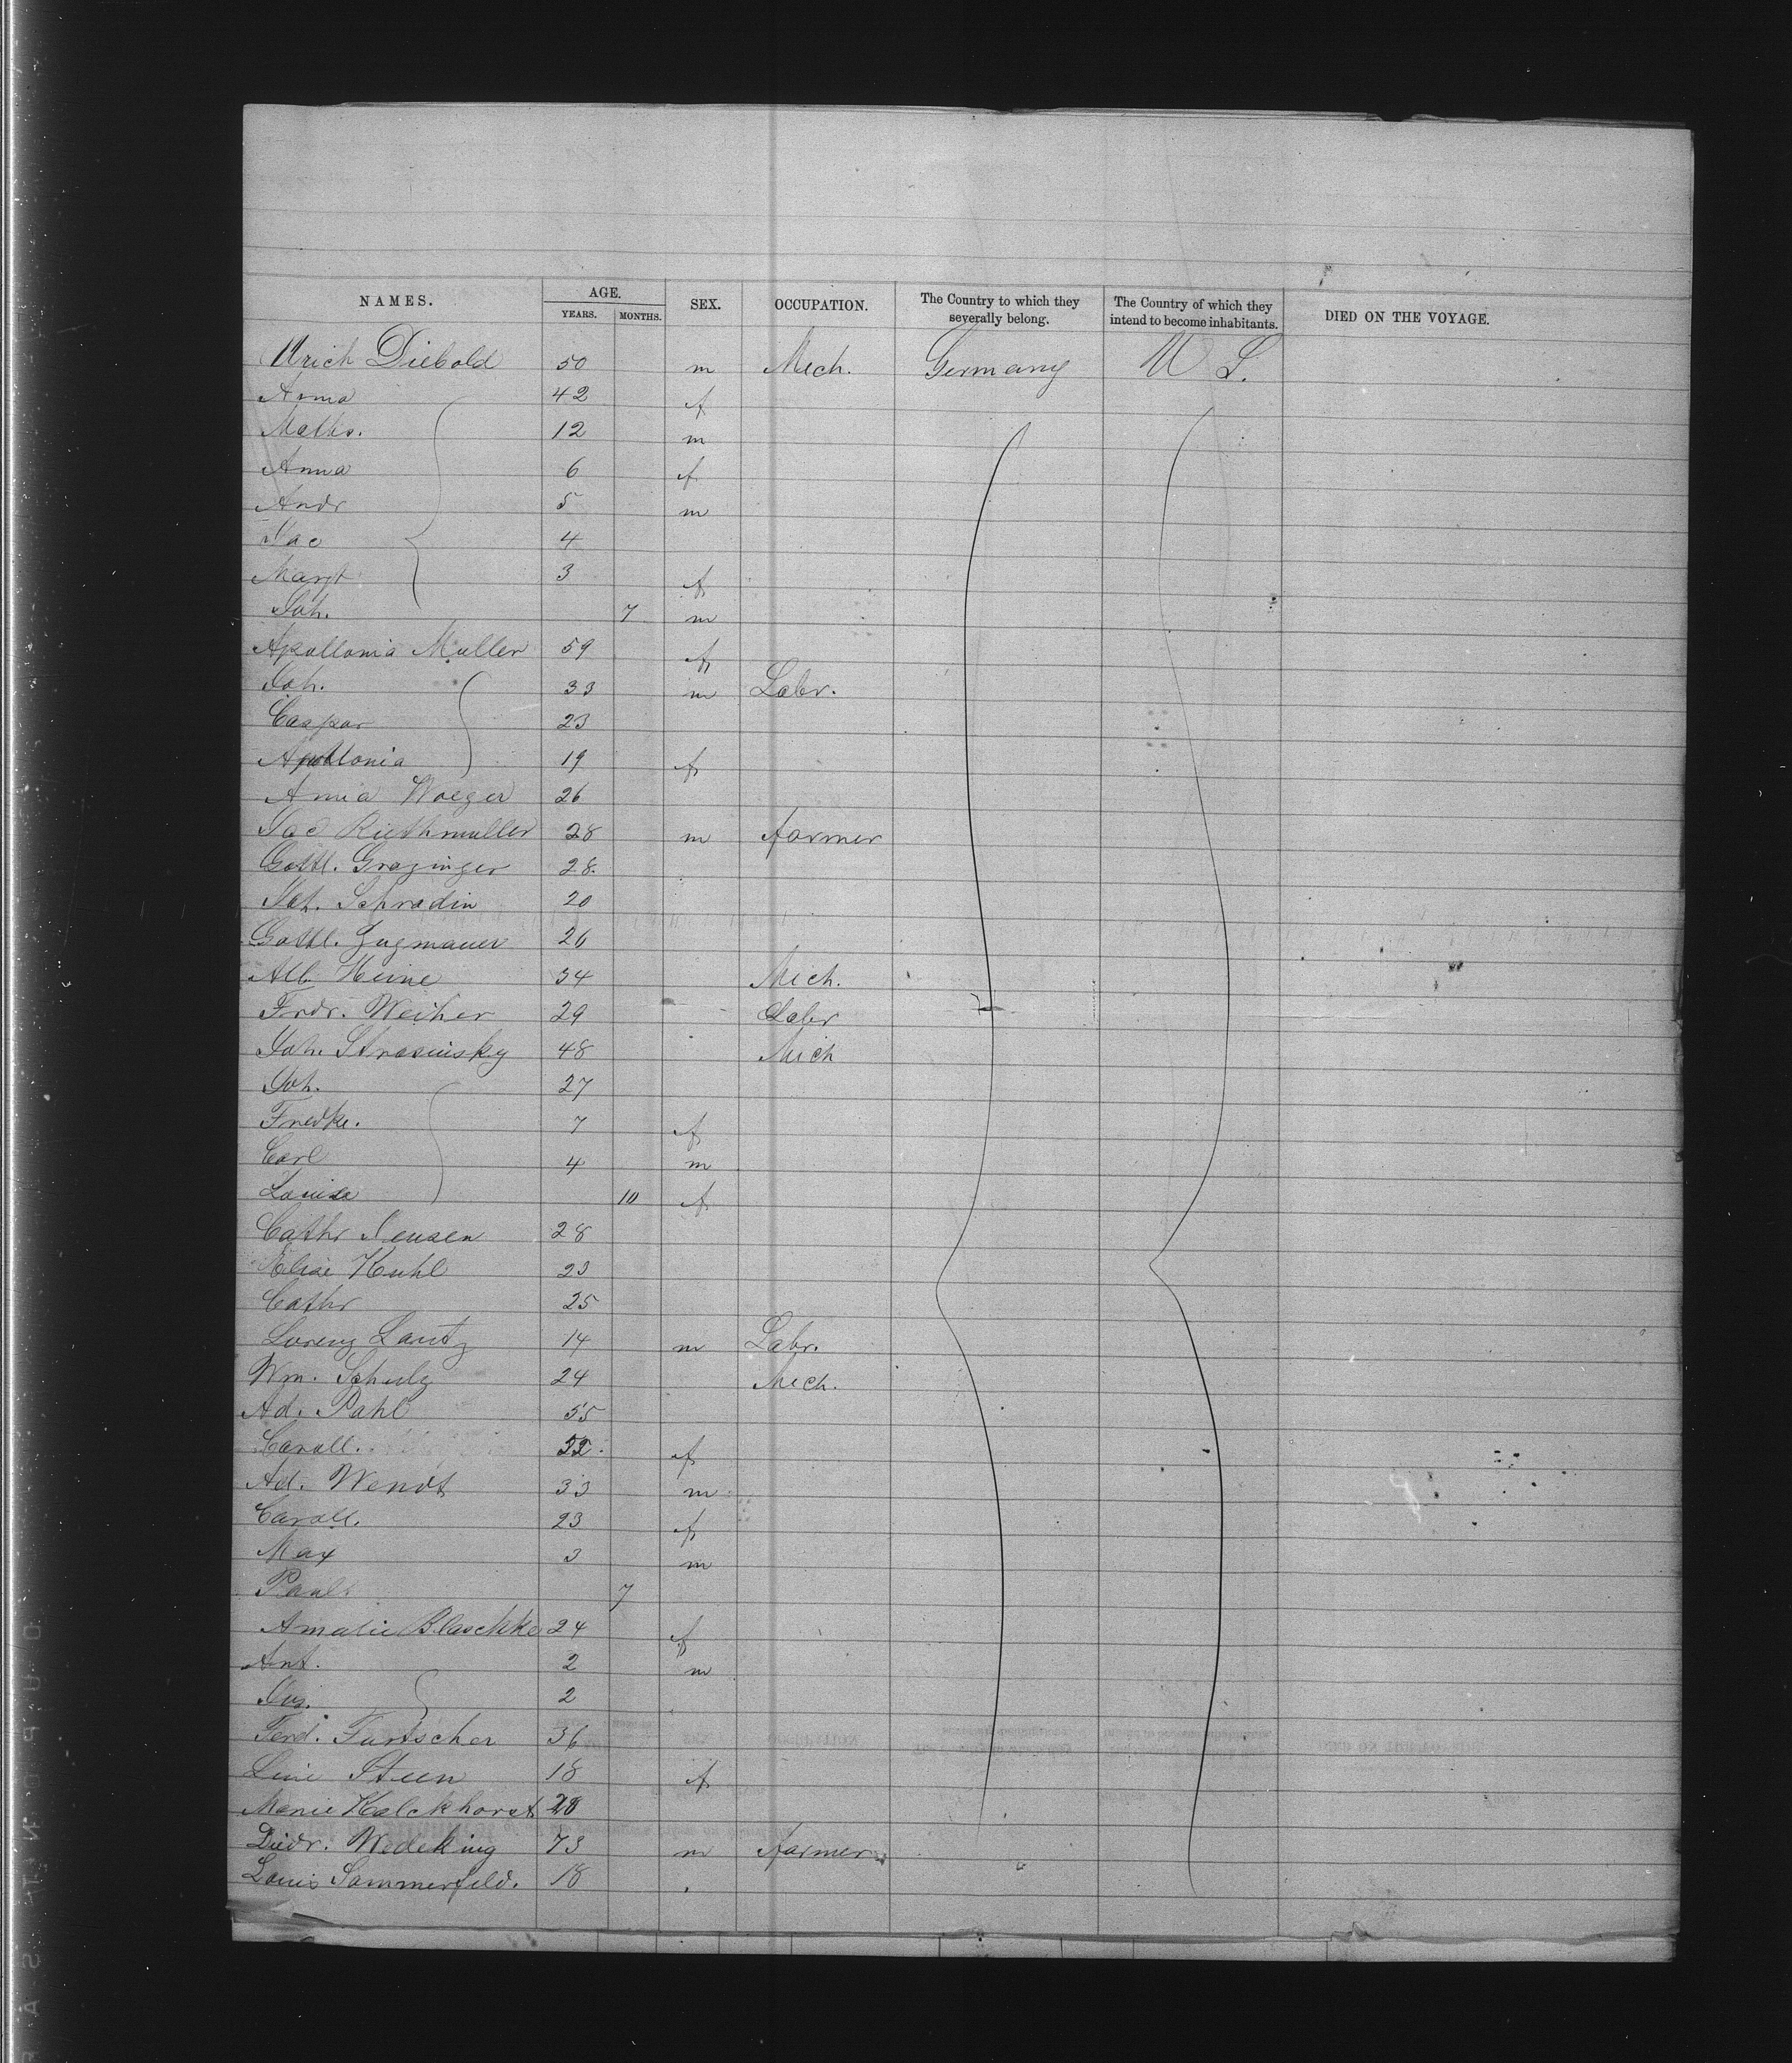 NAMES. AGE. SEX. OCCUPATION. The Country to which they severally belong. The Country of which they intend to become inhabitants. DIED ON THE VOYAGE.
YEARS. MONTHS.
Ulrich Diebold 50 m Mech. Germany U S.
Anna 42 f
Maths. 12 m
Anna 6 f
Andr 5 m
Jac 4
Margt 3 f
Joh. 7 m
Apollonia Muller 59 f
Joh. 33 m Labr.
Caspar 23
Apollonia 19 f
Annia Woeger 26
Jac Riethmuller 28 m farmer
Gottl. Grazinger 28.
Joh. Schradin 20
Gottl. Zugmauer 26
Alb. Heine 34 Mech.
Frdr. Weiher 29 Labr
Joh. Strasinsky 48 Mech
Joh. 27
Fredke. 7 f
Carl 4 m
Louise 10 f
Cathr Jensen 28
Elise Kuhl 23
Cathr 25
Lorenz Lautz 14 m Labr.
Wm. Schulz 24 Mech.
Ad. Pahl 55
Caroll. 22. f
Ad. Wendt 33 m
Caroll. 23 f
Max 3 m
Paul 7
Amalie Blaschke 24 f
Ant. 2 m
2
Ferd. Furtscher 36
Line Steen 18 f
Marie Kalckhorst 28
Diedr. Wedeking 73 m farmer
Louis Sommerfeld. 18